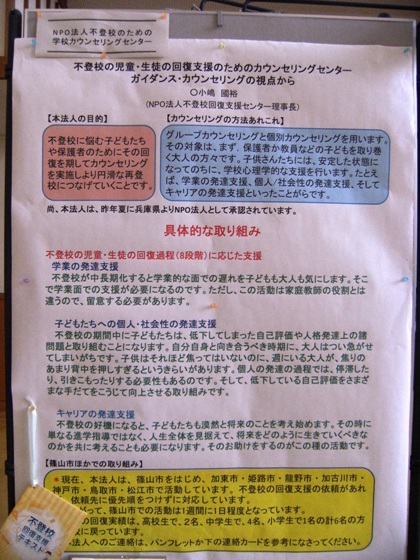 NPO法人不登校のための
学校カウンセリングセンター
不登校の児童・生徒の回復支援のためのカウンセリングセンター
ガイダンス・カウンセリングの視点から
〇小嶋　國裕
(NPO法人不登校回復支援センター理事長)
【本法人の目的】
不登校に悩む子どもたち
や保護者のためにその回
復を期してカウンセリング
を実施しより円滑な再登
校につなげていくことです。
【カウンセリングの方法あれこれ】
グループカウンセリングと個別カウンセリングを用います。
その対象は、まず、保護者か教員などの子どもを取り巻
く大人の方々です。子供さんたちには、安定した状態に
なってのちに、学校心理学的な支援を行います。たとえ
ば、学業の発達支援、個人/社会性の発達支援、そして
キャリアの発達支援といったことがらです。
尚、本法人は、昨年夏に兵庫県よりNPO法人として承認されています。
具体的な取り組み
不登校の児童・生徒の回復過程(8段階)に応じた支援
学業の発達支援
不登校が中長期化すると学業的な面での遅れを子どもも大人も気にします。そこ
で学業面での支援が必要になるのです。ただし、この活動は家庭教師の役割とは
違うので、留意する必要があります。
子どもたちへの個人・社会性の発達支援
不登校の期間中に子どもたちは、低下してしまった自己評価や人格発達上の諸
問題と取り組むことになります。自分自身と向き合うべき時期に、大人はつい急がせ
てしまいがちです。子供はそれほど焦ってはいないのに、週にいる大人が、焦りの
あまり背中を押しすぎるというきらいがあります。個人の発達の過程では、停滞した
り、引きこもったりする必要性もあるのです。そして、低下している自己評価をさまざ
まな手だてをこうじて向上させる取り組みです。
キャリアの発達支援
不登校の好機になると、子どもたちも漠然と将来のことを考え始めます。その時に
単なる進学指導ではなく、人生全体を見据えて、将来をどのように生きていくべきな
のかを共に考えることも必要になります。そのお助けをするのがこの種の活動です。
【篠山市ほかでの取り組み】
• 現在、本法人は、篠山市をはじめ、加東市・姫路市・龍野市・加古川市・
神戸市・鳥取市・松江市で活動しています。不登校の回復支援の依頼があれ
依頼先に優先順をつけずに対応しています。
がって、篠山市での活動は1週間に1日程度となっています。
の回復実績は、高校生で、2名、中学生で、4名、小学生で1名の計6名の方
校に戻っています。
法人へのご連絡は、パンフレットか下の連絡カードを参考になさってください。
不登校
回復支援
テキスト